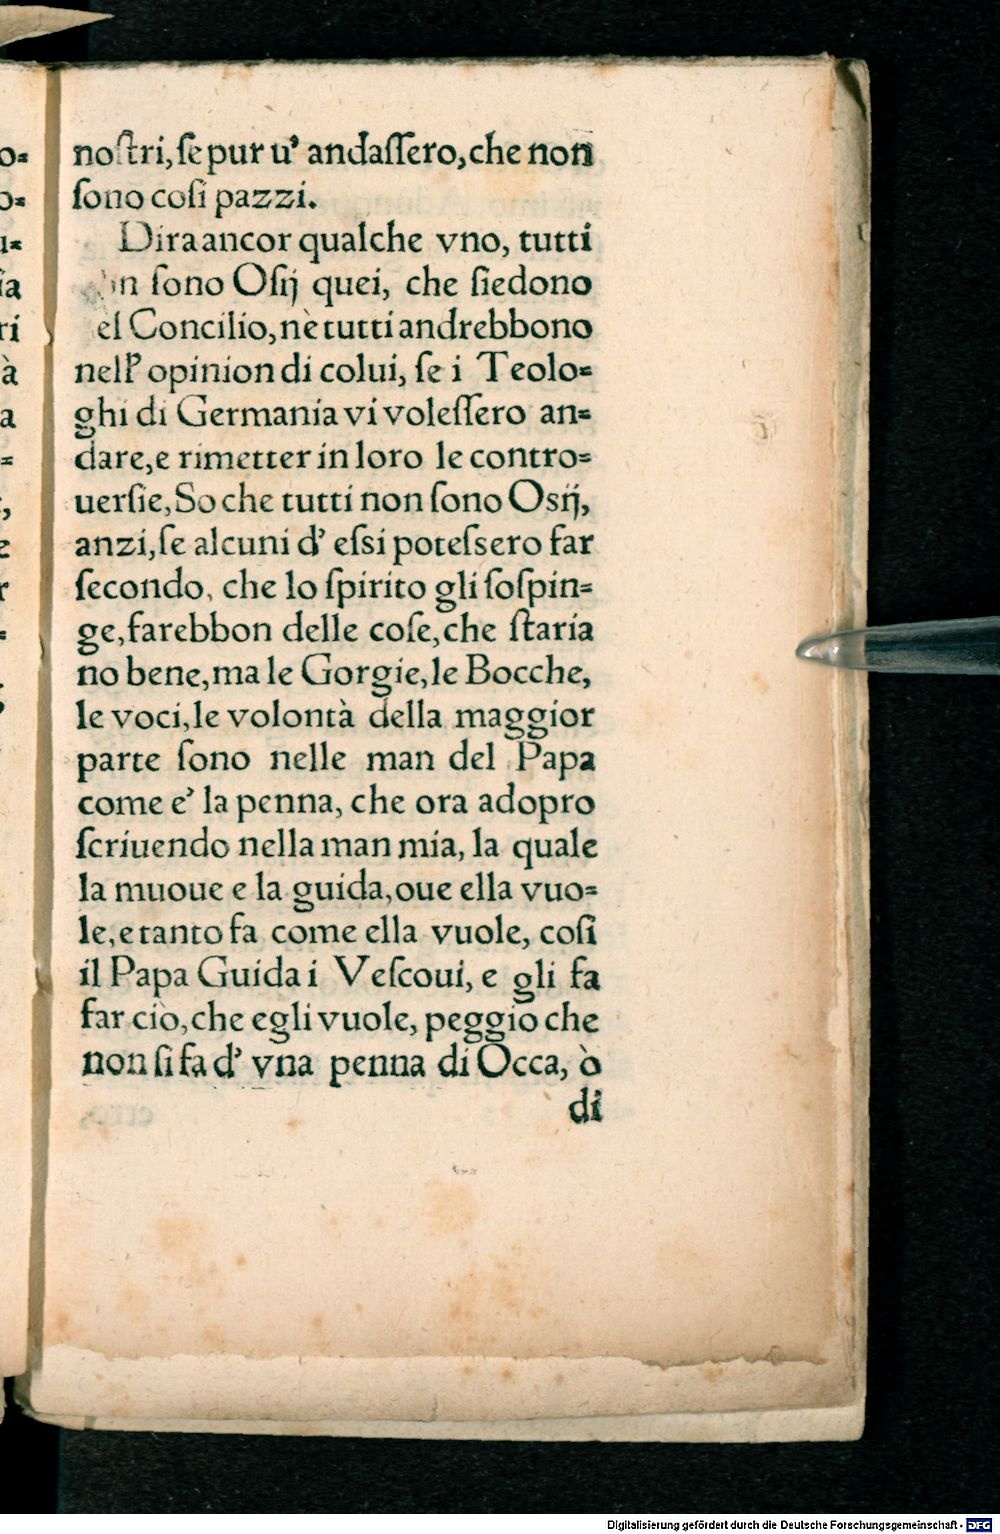 noſtri, ſe pur u' andaſſero, che non
ſono coſi pazzi.
Dira ancor qualche vno, tutti
ſono Oſij quei, che ſiedono
el Concilio, nè tutti andrebbono
nell' opinion di colui, ſe i Teolo=
ghi di Germania vi voleſſero an=
dare, e rimetter in loro le contro=
uerſie, So che tutti non ſono Osij,
anzi, ſe alcuni d' eſsi poteſsero far
ſecondo, che lo ſpirito gli ſoſpin=
ge, farebbon delle coſe, che ſtaria
no bene, ma le Gorgie, le Bocche,
le voci, le volontà della maggior
parte ſono nelle man del Papa
come e' la penna, che ora adopro
ſcriuendo nella man mia, la quale
la muoue e la guida, oue ella vuo=
le, e tanto fa come ella vuole, coſi
il Papa Guida i Veſcoui, e gli fa
far ciò, che egli vuole, peggio che
non ſi fa d' vna penna di Occa, ò
di
Digitalisierung gefördert durch die Deutsche Forschungsgemeinschaft - DFG